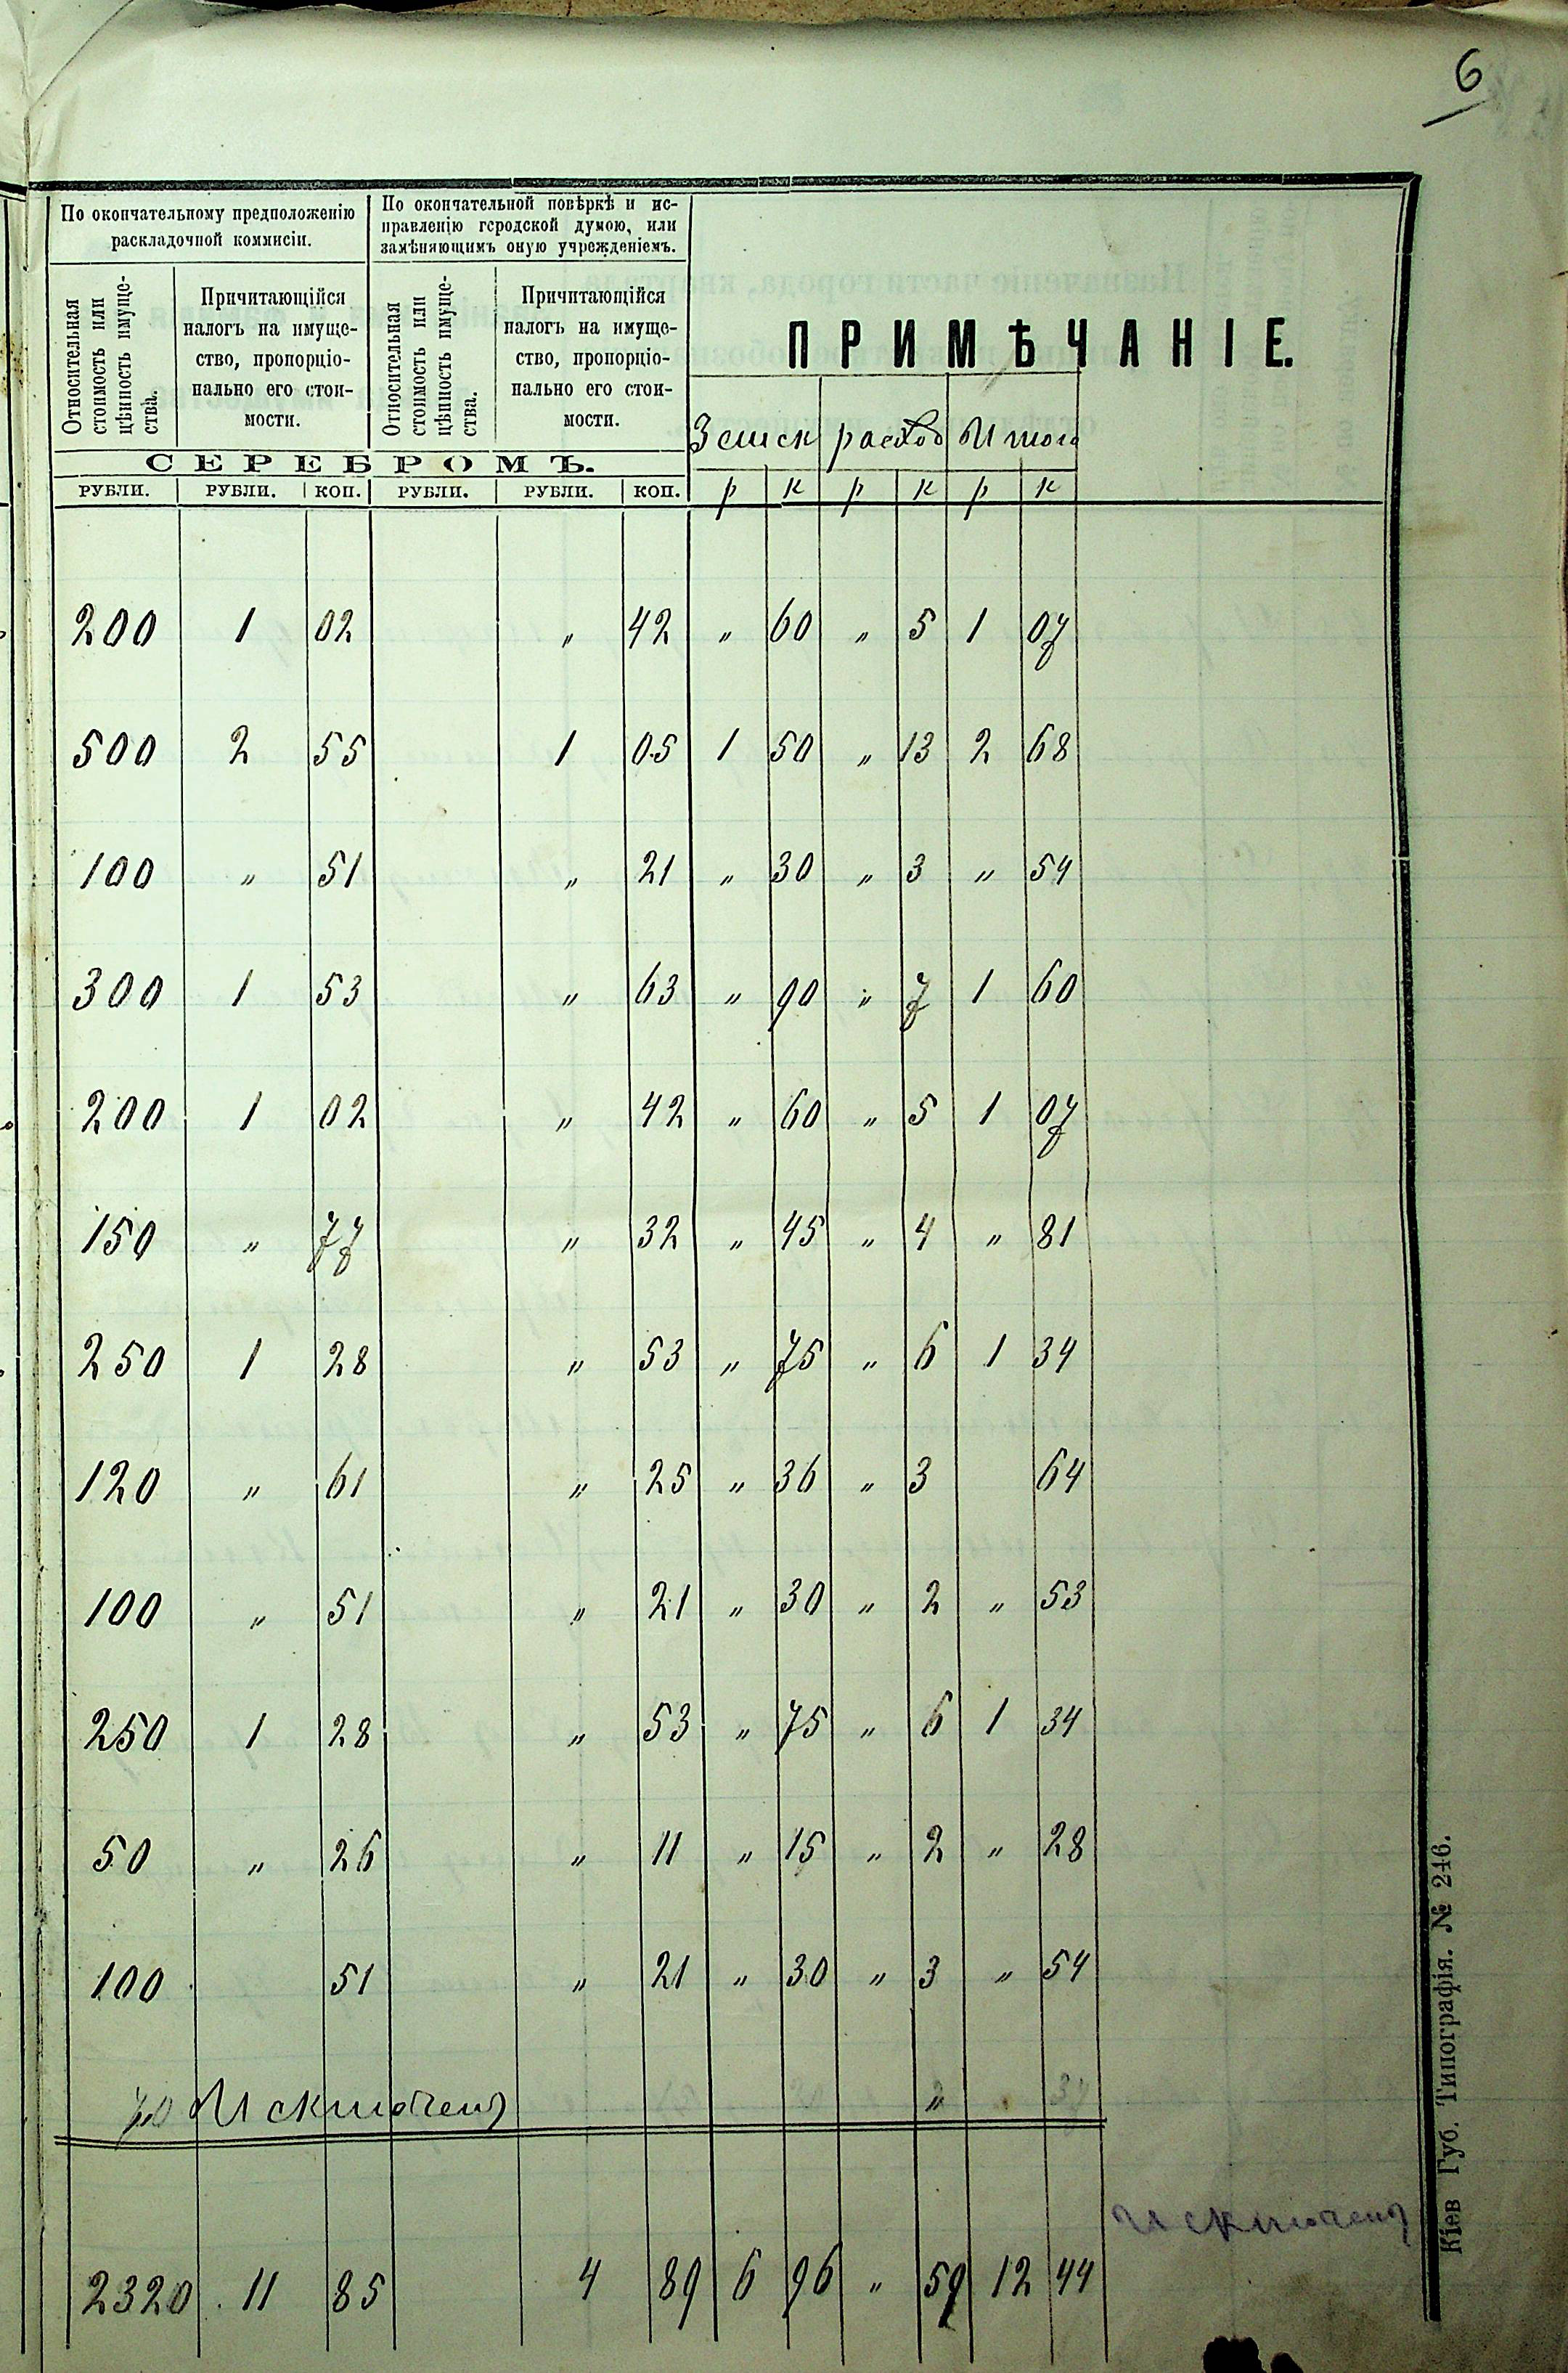 6
По окончательному предположенію
раскладочной коммисіи.
По окончательной повѣркѣ и ис-
правленію городской думою, или
замѣняющимъ оную учрежденіемъ.
ПРИМѢЧАНІЕ.
Относительная
стоимость или
цѣнность имуще-
ства.
Причитающійся
налогъ на имуще-
ство, пропорціо-
нально его стои-
мости.
Относительная
стоимость или
цѣнность имуще-
ства.
Причитающійся
налогъ на имуще-
ство, пропорціо-
нально его стои-
мости.
Земск расход Итого
СЕРЕБРОМЪ.
РУБЛИ. РУБЛИ. КОП. РУБЛИ. РУБЛИ. КОП. р к р к р к
200 1 02 „ 42 „ 60 „ 5 1 07
500 2 55 1 05 1 50 „ 13 2 68
100 „ 51 „ 21 „ 30 „ 3 „ 54
300 1 53 „ 63 „ 90 „ 7 1 60
200 1 02 „ 42 „ 60 „ 5 1 07
150 „ 77 „ 32 „ 45 „ 4 „ 81
250 1 28 „ 53 „ 75 „ 6 1 34
120 „ 61 „ 25 „ 36 „ 3 64
100 „ 51 „ 21 „ 30 „ 2 „ 53
250 1 28 „ 53 „ 75 „ 6 1 34
50 „ 26 „ 11 „ 15 „ 2 „ 28
100 51 „ 21 „ 30 „ 3 „ 54
Исключено
исключено
2320 11 85 4 89 6 96 „ 59 12 44
Кіев Губ. Типографія. № 246.